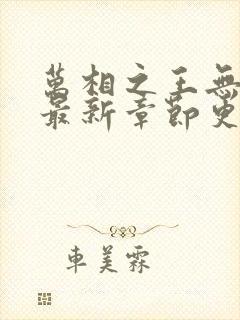 萬相之王無
最新章節更
車美霖